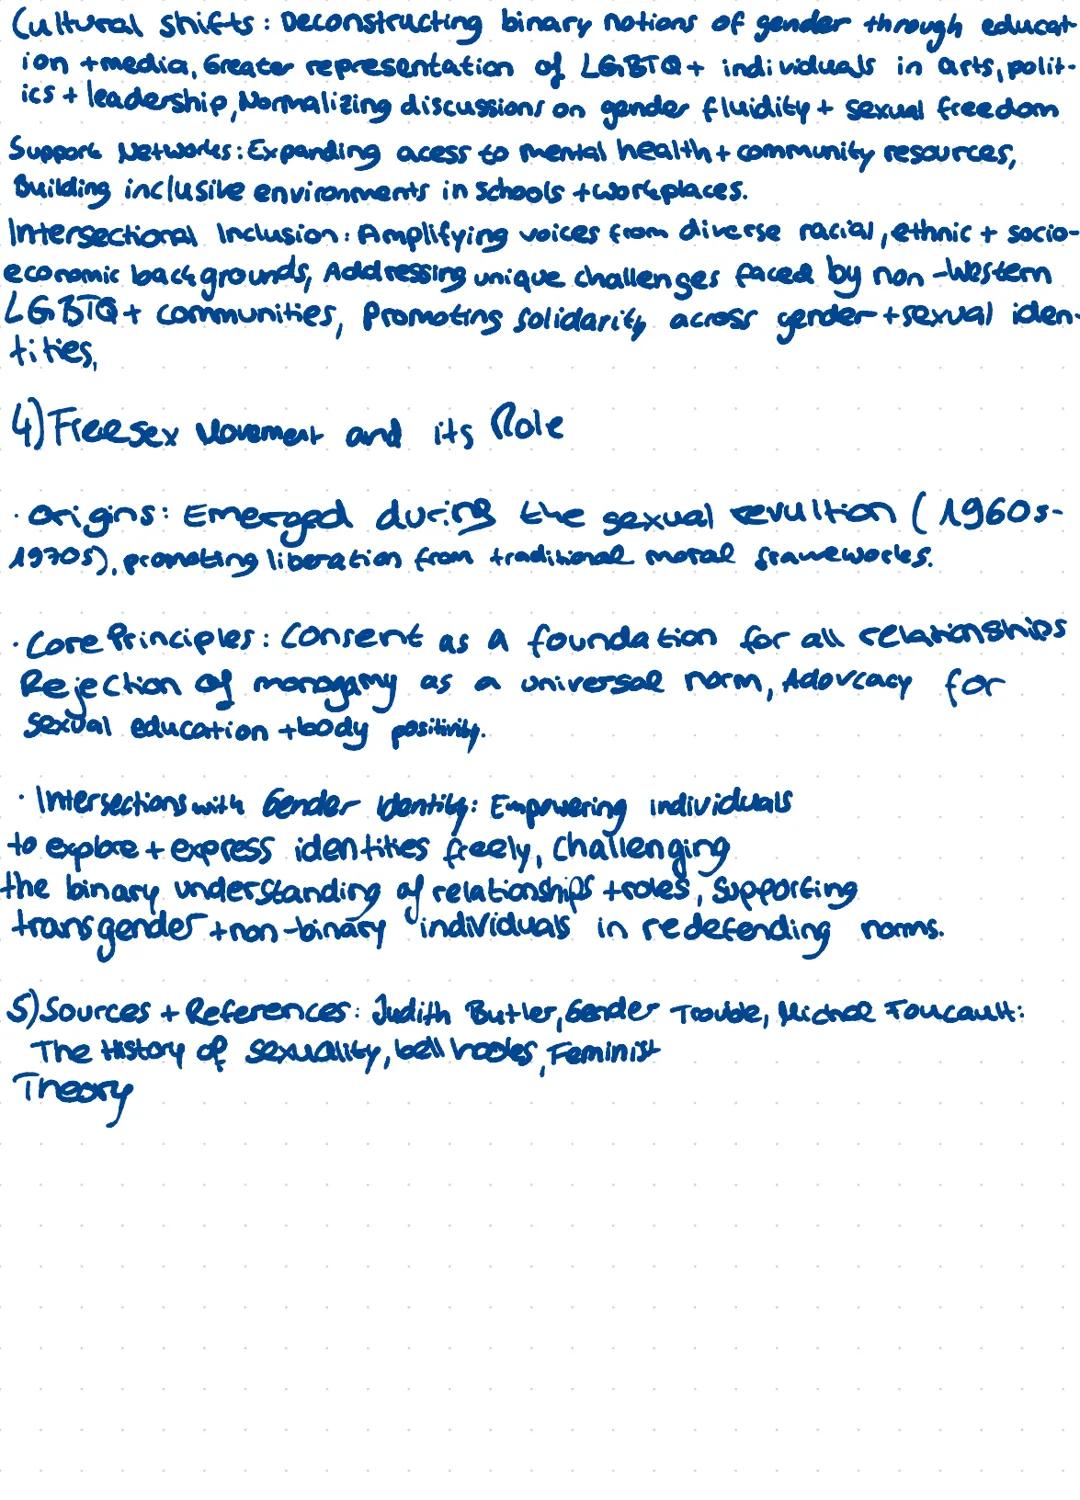 Cultural shifts: Deconstructing binary notions of gender through educat-
ion + media, Greater representation of LGBTQ+ individuals in arts, polit-
ics + leadership, Normalizing discussions on gender fluidity + sexual freedom
Support Networks: Expanding acess to mental health + community resources,
Building inclusive environments in schools + workplaces.
Intersectional Inclusion: Amplifying voices from diverse racial, ethnic + socio-
economic backgrounds, Addressing unique challenges faced by non-Western
LGBTQ+ communities, Promoting solidarity across gender + sexual iden-
tities,
4) Freesex Movement and its Role
· Origins: Emerged during the sexual revultion (1960s-
1970s), promoting liberation from traditional moral frameworks.
· Core Principles: Consent as a foundation for all relationships
Rejection of monogamy as a universal norm, Adovcacy for
sexual education + body positivity.
· Intersections with Gender Identity: Empowering individuals
to explore + express identities freely, Challenging
the binary understanding of relationships + roles, Supporting
transgender + non-binary individuals in redefending norms.
5) Sources + References: Judith Butler, Gender Trouble, Michel Foucault:
The History of Sexuality, bell hooks, Feminist
Theory